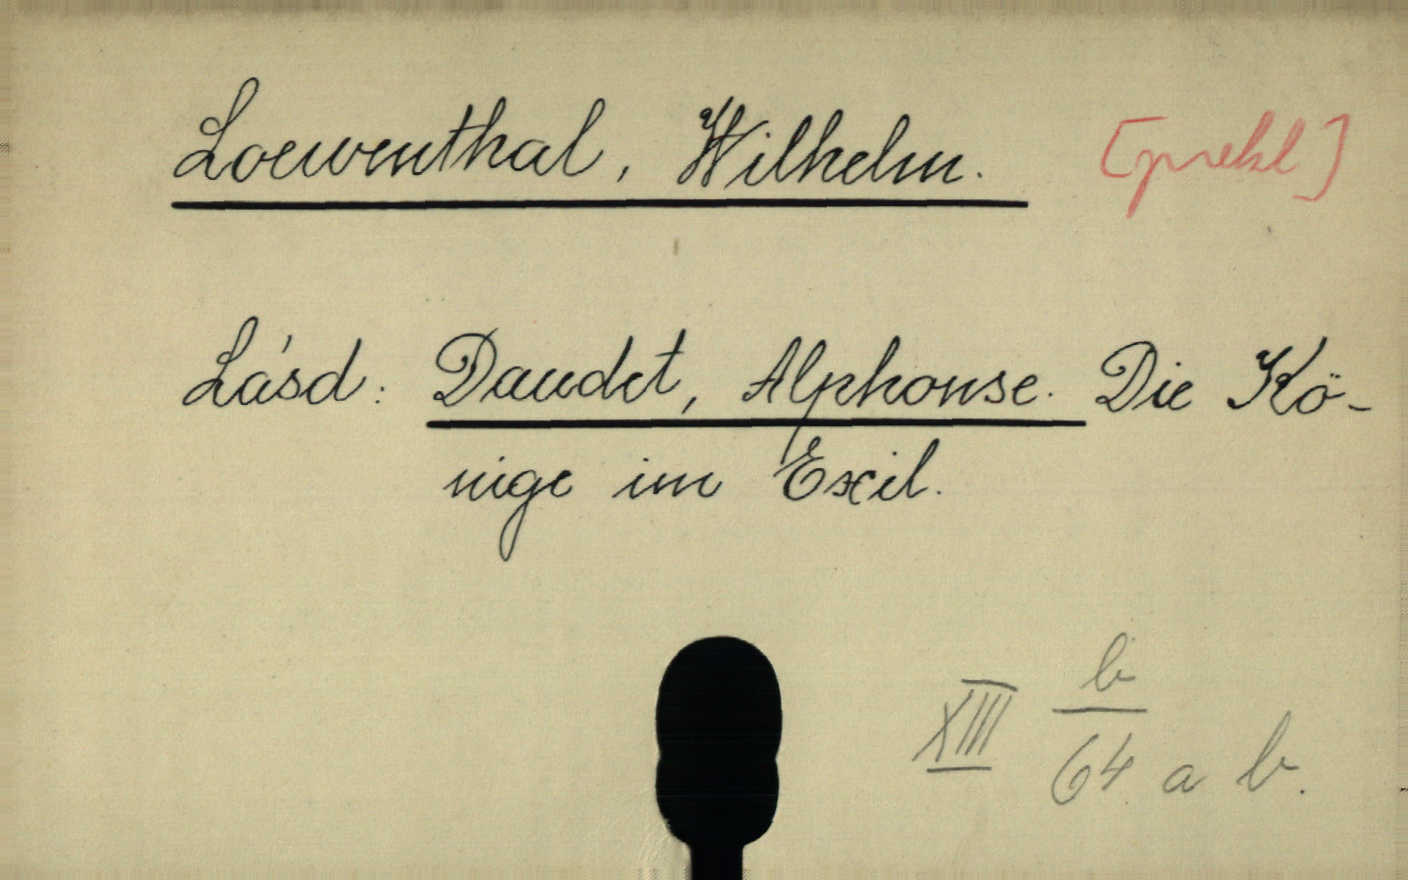 Loewenthal, Wilhelm. [prekl]
Lásd: Daudet, Alphonse. Die Kö-
nige im Exil.
XIII b/64 a b.